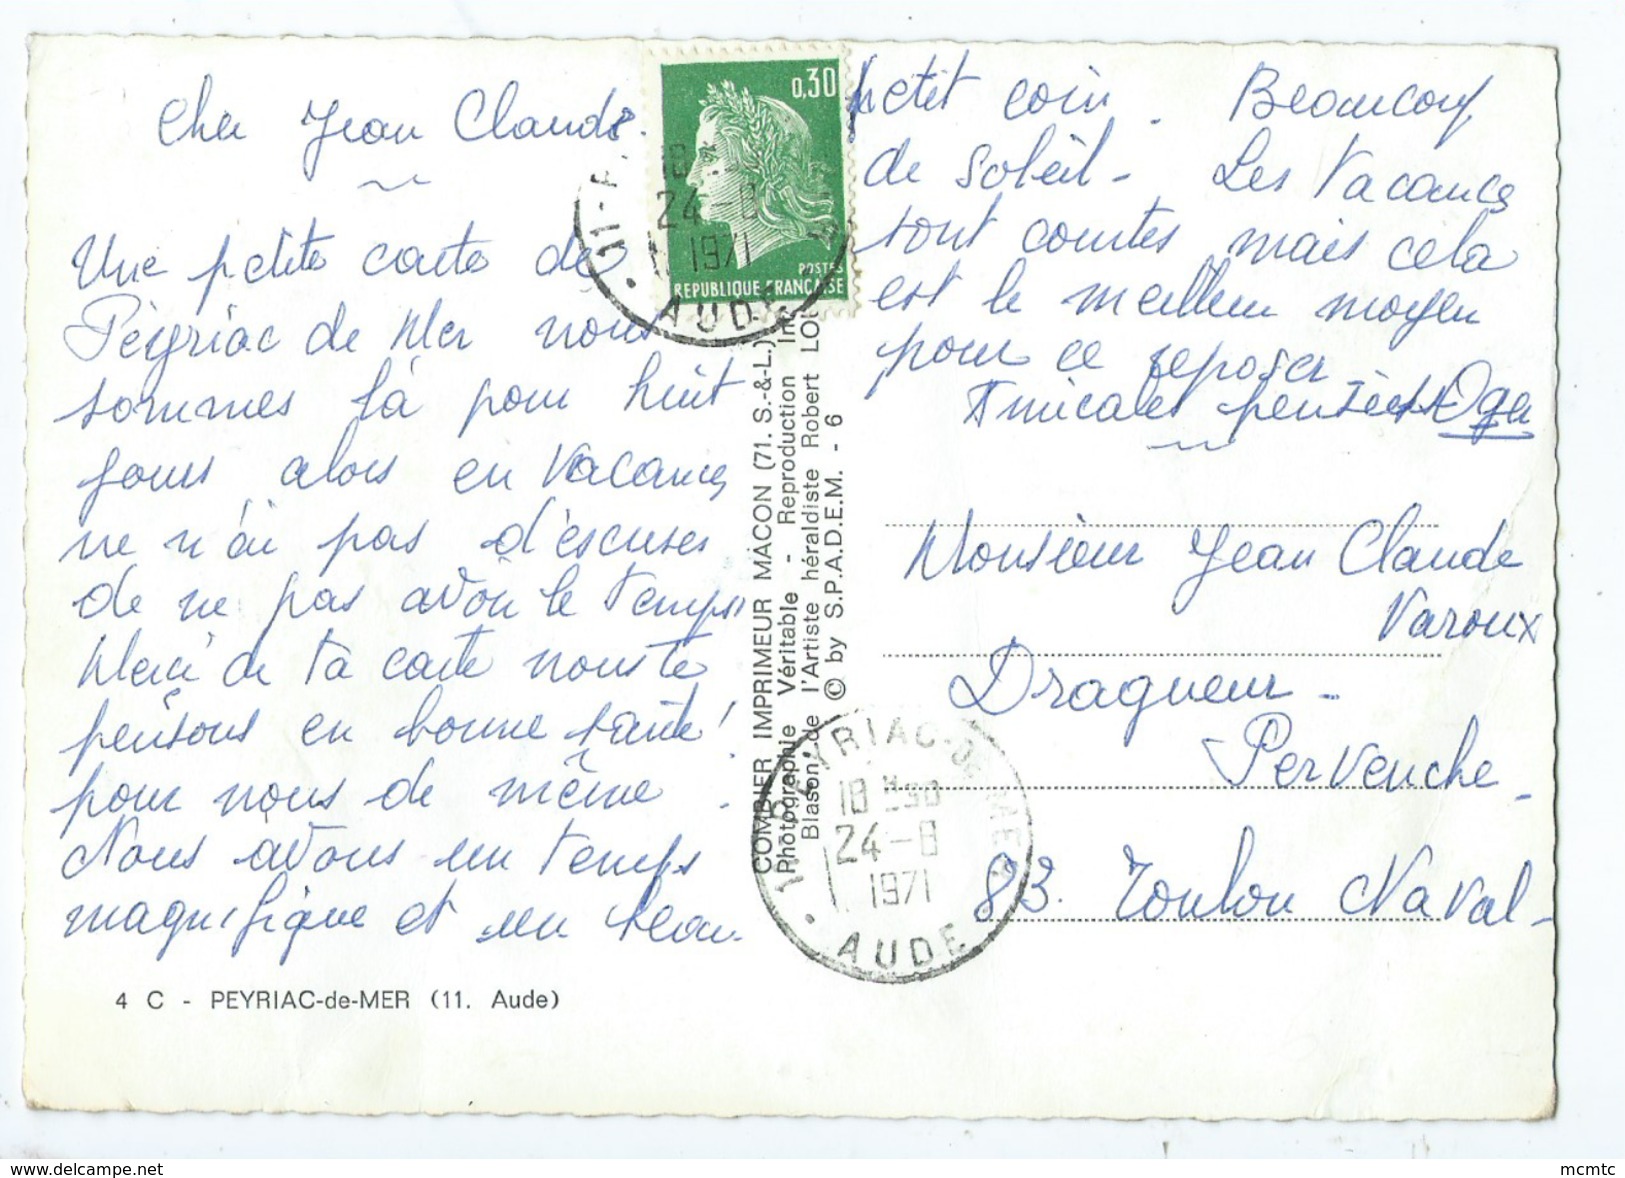 Cher Jean Claude.
Une petite carte de
Peyriac de Mer nous
sommes là pour huit
jours alors en vacances
ne n'ai pas d'escuses
de ne pas avoir le temps
Merci de ta carte nous te
pensons en bonne santé !
pour nous de même .
Nous avons un temps
magnifique et un beau
4 C - PEYRIAC-de-MER (11. Aude)
COMBIER IMPRIMEUR MACON (71. S.-&-L.)
Photographie Véritable - Reproduction
Blason de l'Artiste héraldiste Robert LOU
© by S.P.A.D.E.M. - 6
0,30
POSTES
REPUBLIQUE FRANÇAISE
18
24-8
1971
AUDE
petit coin. Beaucoup
de soleil - Les Vacances
sont courtes mais cela
est le meilleur moyen
pour ce reposer
Amicales pensées
Monsieur Jean Claude
Varoux
Dragueur -
Pervenche -
83. Toulon Naval -
11 PEYRIAC-DE-MER
18 H 30
24-8
1971
AUDE
www.delcampe.net
mcmtc